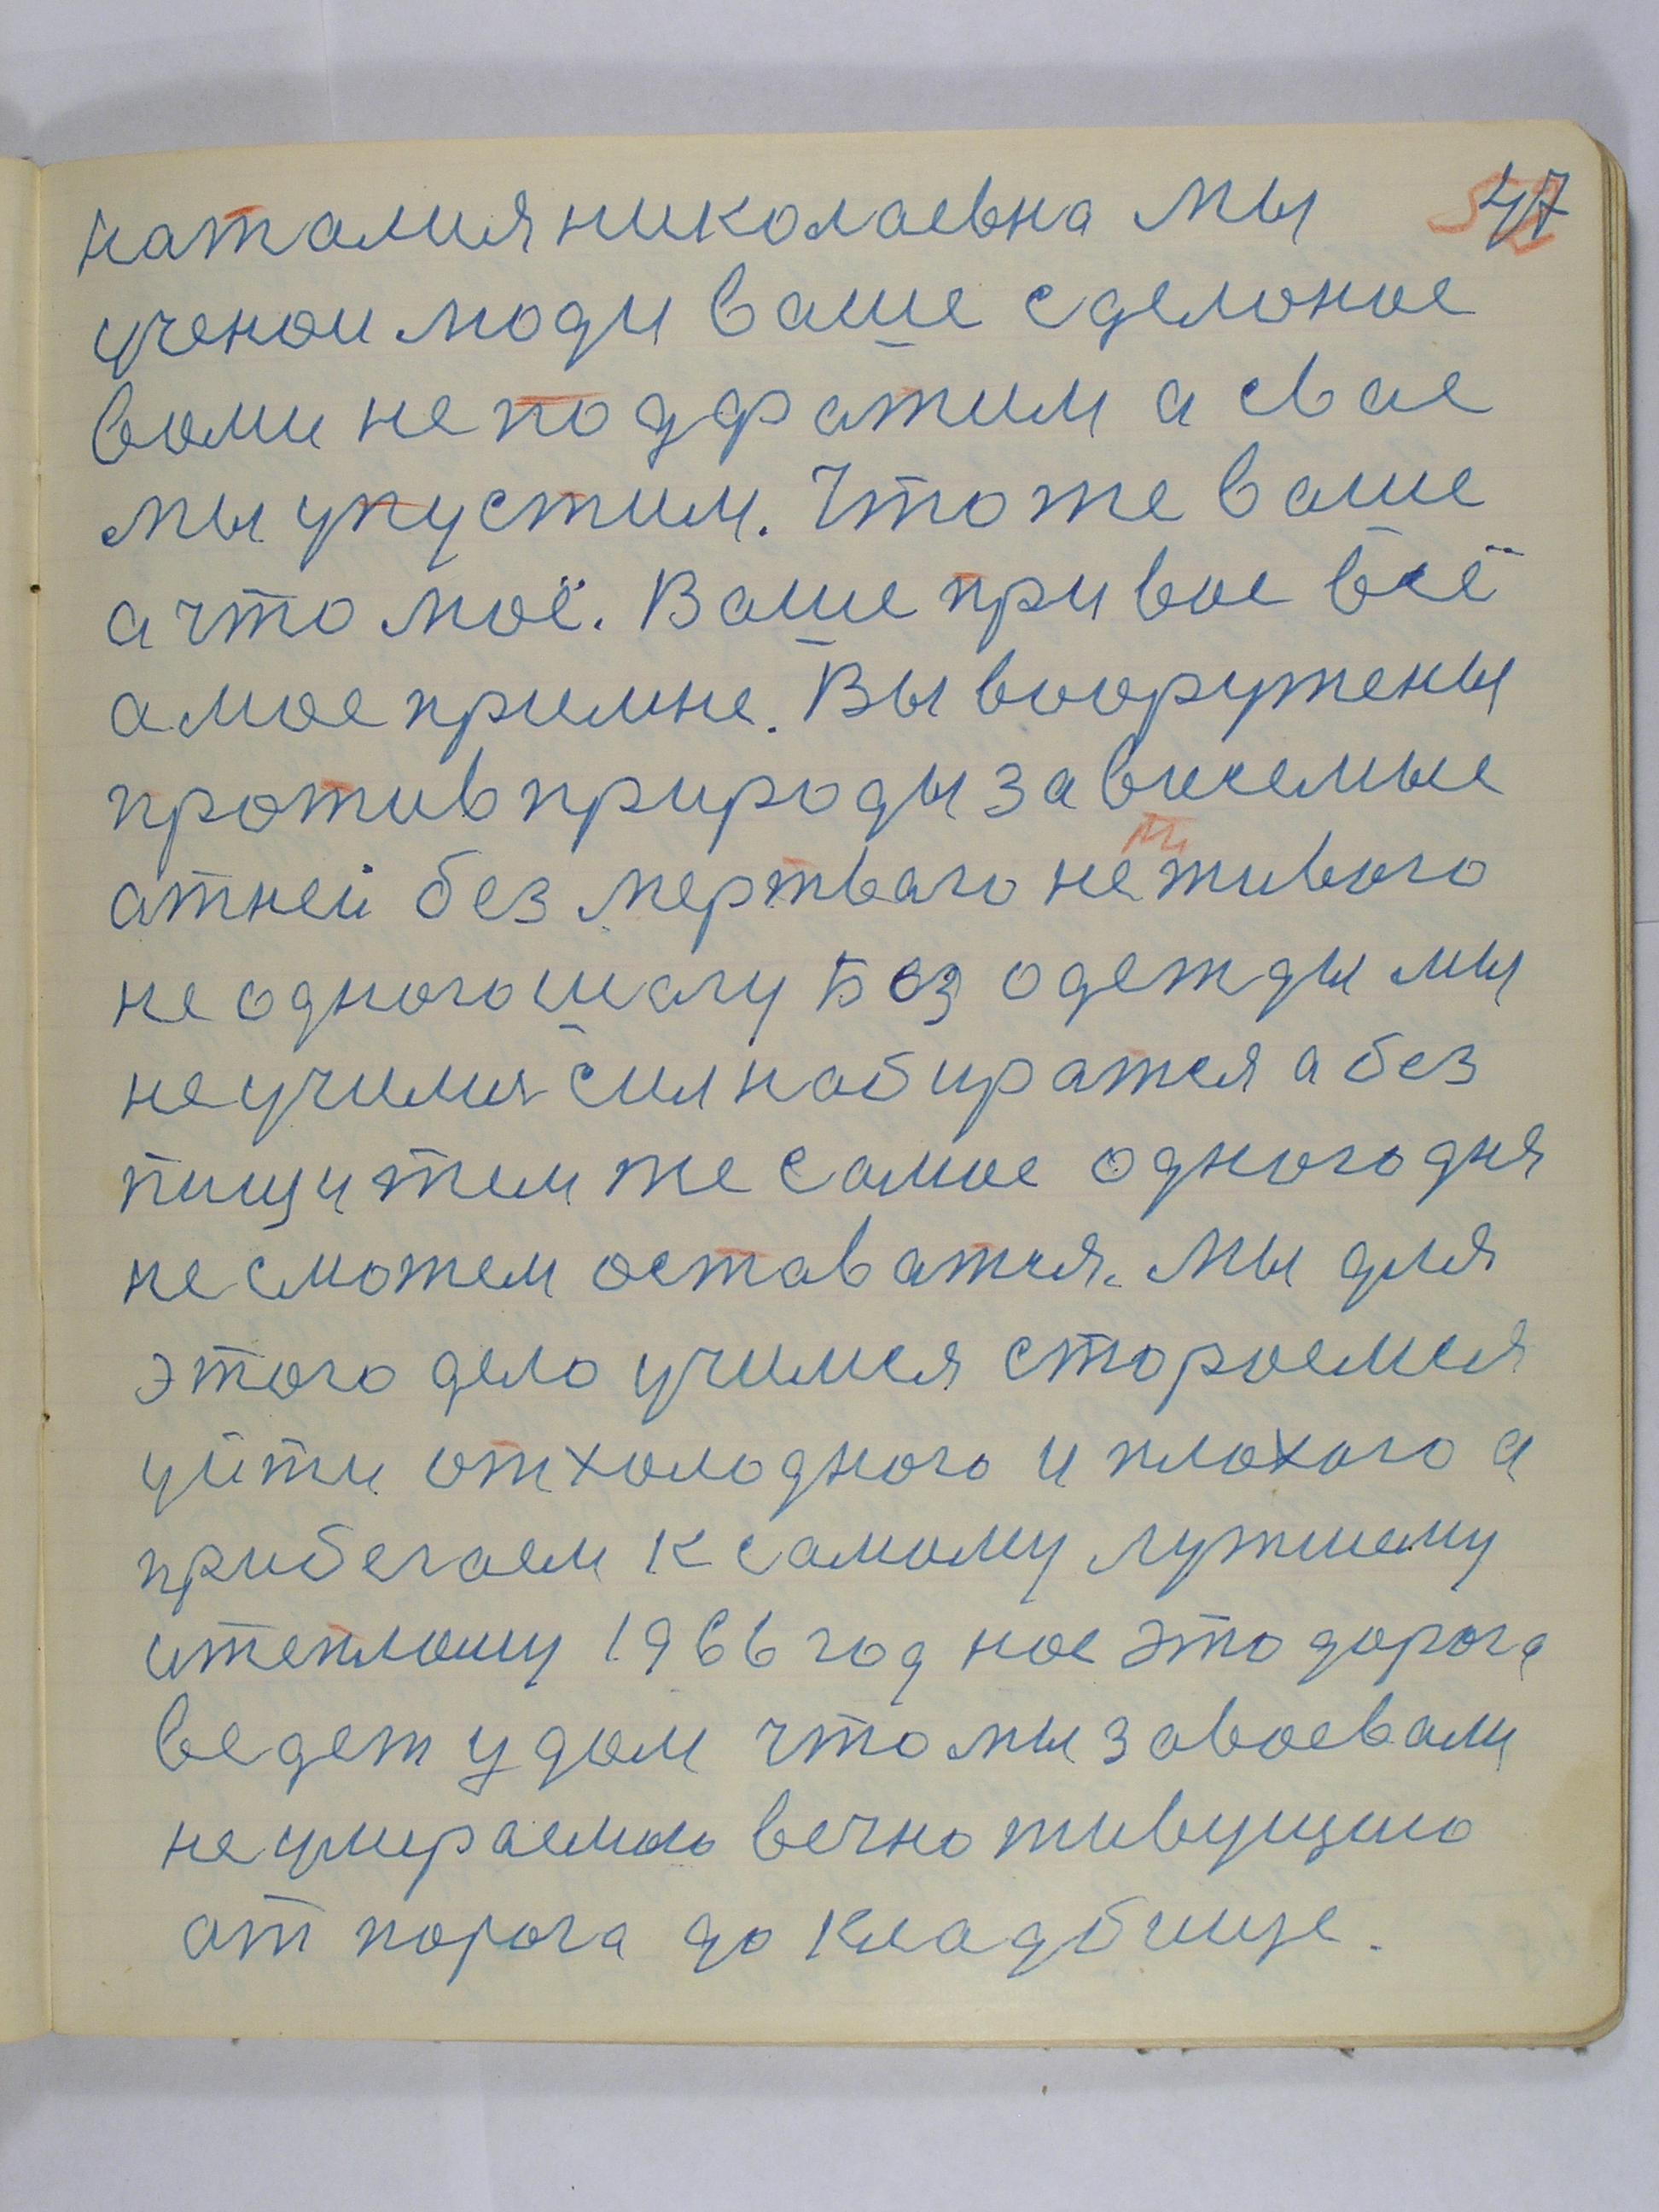 наталия николаевна Мы 47
ученои люди ваше сделоное
вами не подфатим а свае
мы упустим. Что же ваше
а что моё. Ваше при вас всё
а мое примне. Вы вооружены
против природы зависемые
атней без мертваго не живого
не одного шагу Без одежды мы
не учимся сил набиратся а без
пищи тем же самое одного дня
не сможем оставатся. Мы для
этого дела учимся стораемся
уйти от холодного и плохого а
прибегаем к самому лутшему
и теплому 1966 год нас это дорога
ведет у дом что мы завоевали
не умираемою вечно живущию
от порога до кладбище.